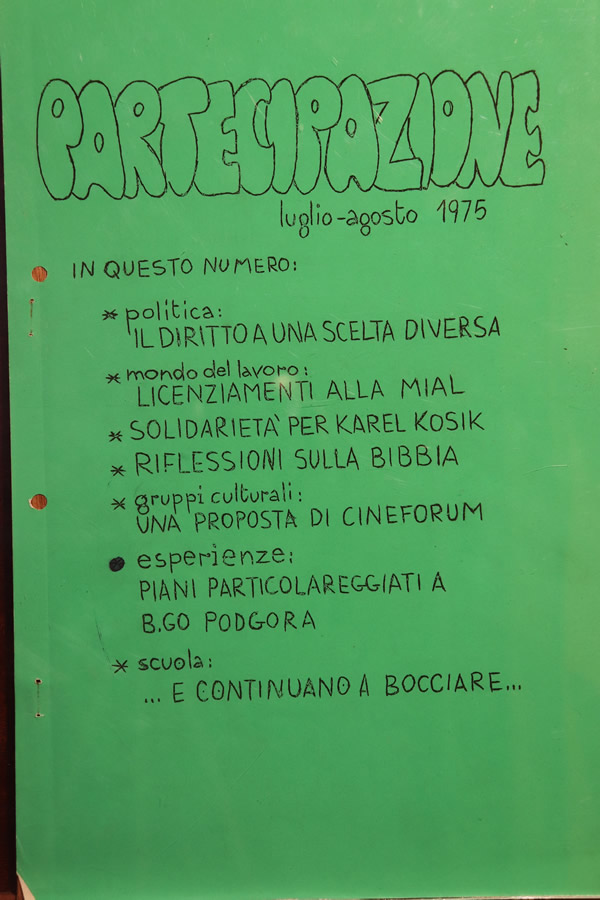 PARTECIPAZIONE
luglio-agosto 1975
IN QUESTO NUMERO:
* politica:
IL DIRITTO A UNA SCELTA DIVERSA
* mondo del lavoro:
LICENZIAMENTI ALLA MIAL
* SOLIDARIETA' PER KAREL KOSIK
* RIFLESSIONI SULLA BIBBIA
* gruppi culturali:
UNA PROPOSTA DI CINEFORUM
● esperienze:
PIANI PARTICOLAREGGIATI A
B.GO PODGORA
* scuola:
... E CONTINUANO A BOCCIARE...